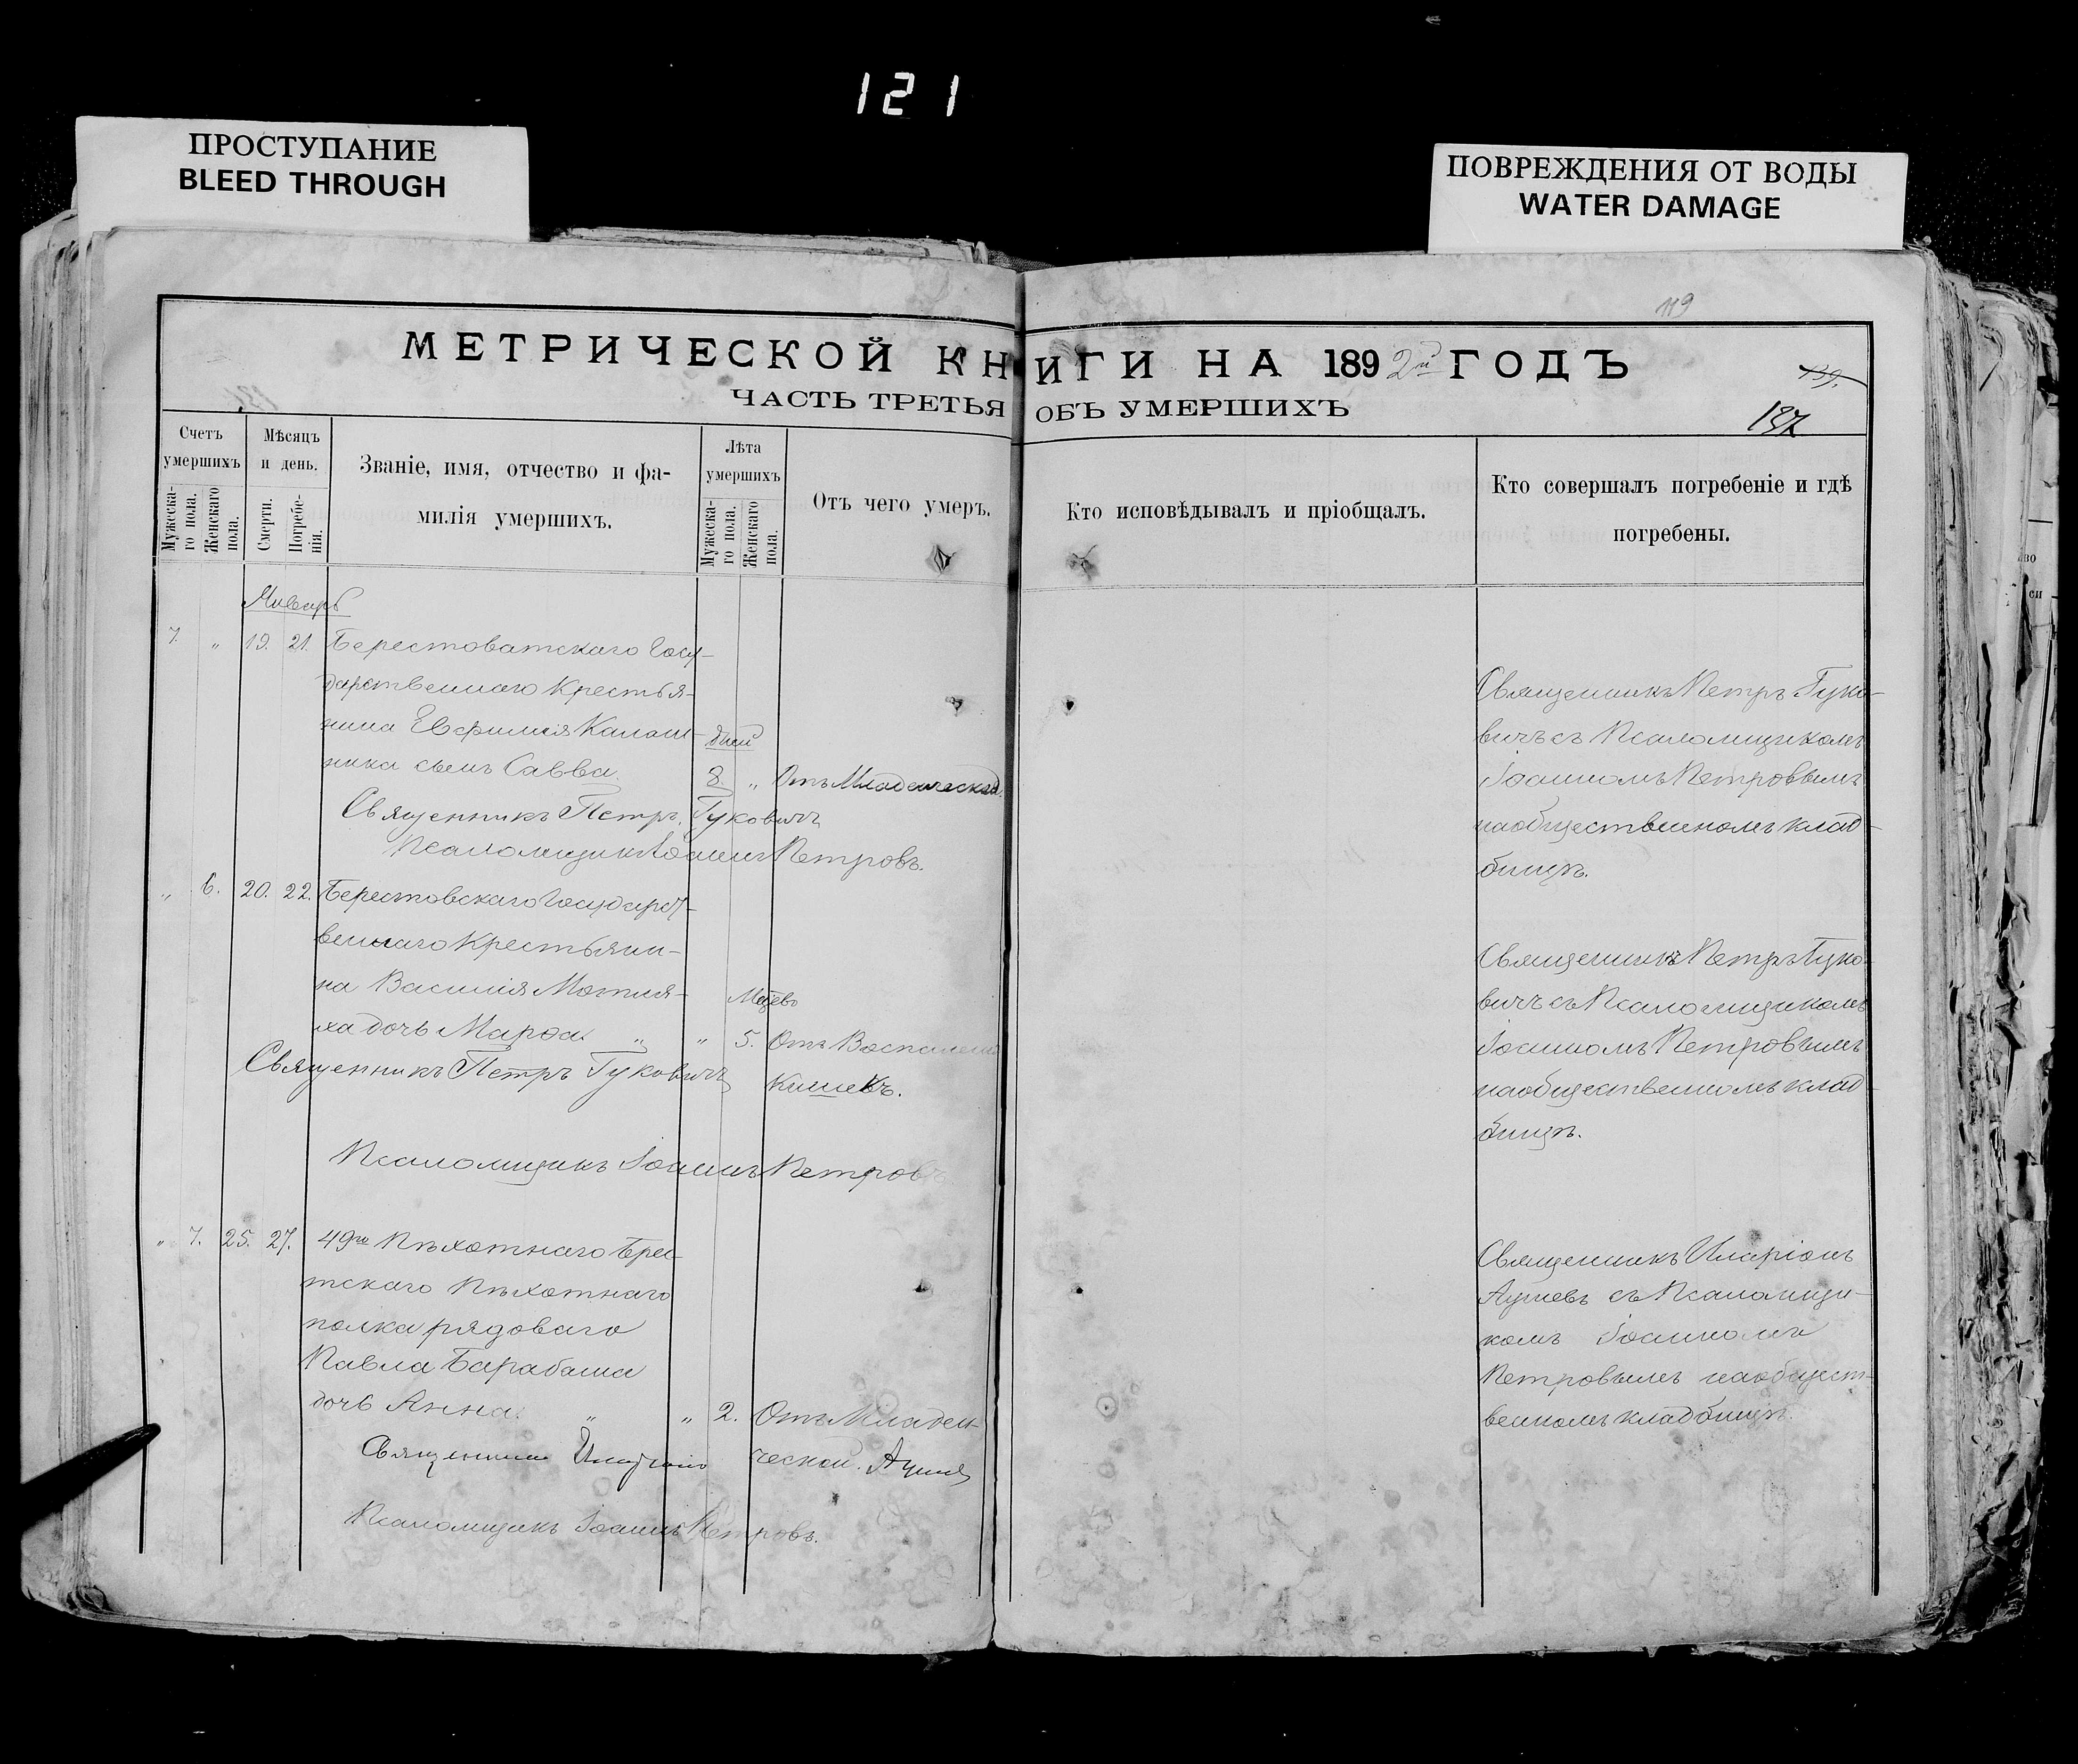 121
ПРОСТУПАНИЕ
BLEED THROUGH
ПОВРЕЖДЕНИЯ ОТ ВОДЫ
WATER DAMAGE
119
МЕТРИЧЕСКОЙ КНИГИ НА 1892й ГОДЪ
ЧАСТЬ ТРЕТЬЯ ОБЪ УМЕРШИХЪ
139.
Счетъ умершихъ
Мужескаго пола.
Женскаго пола.
Мѣсяцъ и день.
Смерти.
Погребенія.
Званіе, имя, отчество и фа-
милія умершихъ.
Лѣта умершихъ
Мужескаго пола.
Женскаго пола.
Отъ чего умеръ.
Кто исповѣдывалъ и пріобщалъ.
Кто совершалъ погребеніе и гдѣ
погребены.
Январь
7. " 19. 21. Берестоватскаго Госу-
дарственнаго Крестья-
нина Евфимія Калаш-
дней
ника сынъ Савва. 8. " Отъ Младенческой
Священникъ Петръ Гуковичъ
Псаломщикъ Іоаннъ Петровъ.
Священникъ Петръ Гуко-
вичъ съ Псаломщикомъ
Іоанномъ Петровымъ
на общественномъ клад-
бищѣ.
" 6. 20. 22. Берестовскаго Государст-
веннаго Крестьяни-
на Василія Мотля-
Мѣсево
ха дочь Марфа. " " 5. Отъ Воспаленія
Кишекъ.
Священникъ Петръ Гуковичъ
Псаломщикъ Іоаннъ Петровъ
Священникъ Петръ Гуко-
вичъ съ Псаломщикомъ
Іоанномъ Петровымъ
на общественномъ клад-
бищѣ.
" 7. 25. 27. 49го Пѣхотнаго Брес-
тскаго Пѣхотнаго
полка рядоваго
Павла Барабаша
дочь Анна. " " 2. Отъ Младен-
ческой.
Священникъ Иларіонъ
Псаломщикъ Іоаннъ Петровъ.
Священникъ Иларіонъ
съ Псаломщи-
комъ Іоанномъ
Петровымъ на общест-
венномъ кладбищѣ.